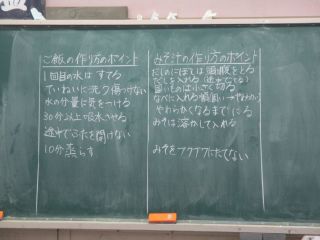 ご飯の作り方のポイント
1回目の水は すてる
ていねいに洗う 傷つけない
水の分量に気をつける
30分以上吸水させる
途中でふたを開けない
10分蒸らす
みそ汁の作り方のポイント
だしのにぼしは頭・腹をとる
だしを入れる
固いものは小さく切る
なべに入れる順
やわらかくなるまでにる
みそは溶かして入れる
みそをフツフツにたてない